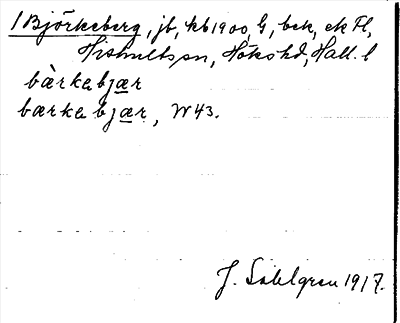 1 Björkeberg, jb, kb 1900, G, bek, ek Fl,
Hishults sn, Höks hd, Hall. l
bàrkabjær
bærkabjær, W 43.
J. Sahlgren 1917.